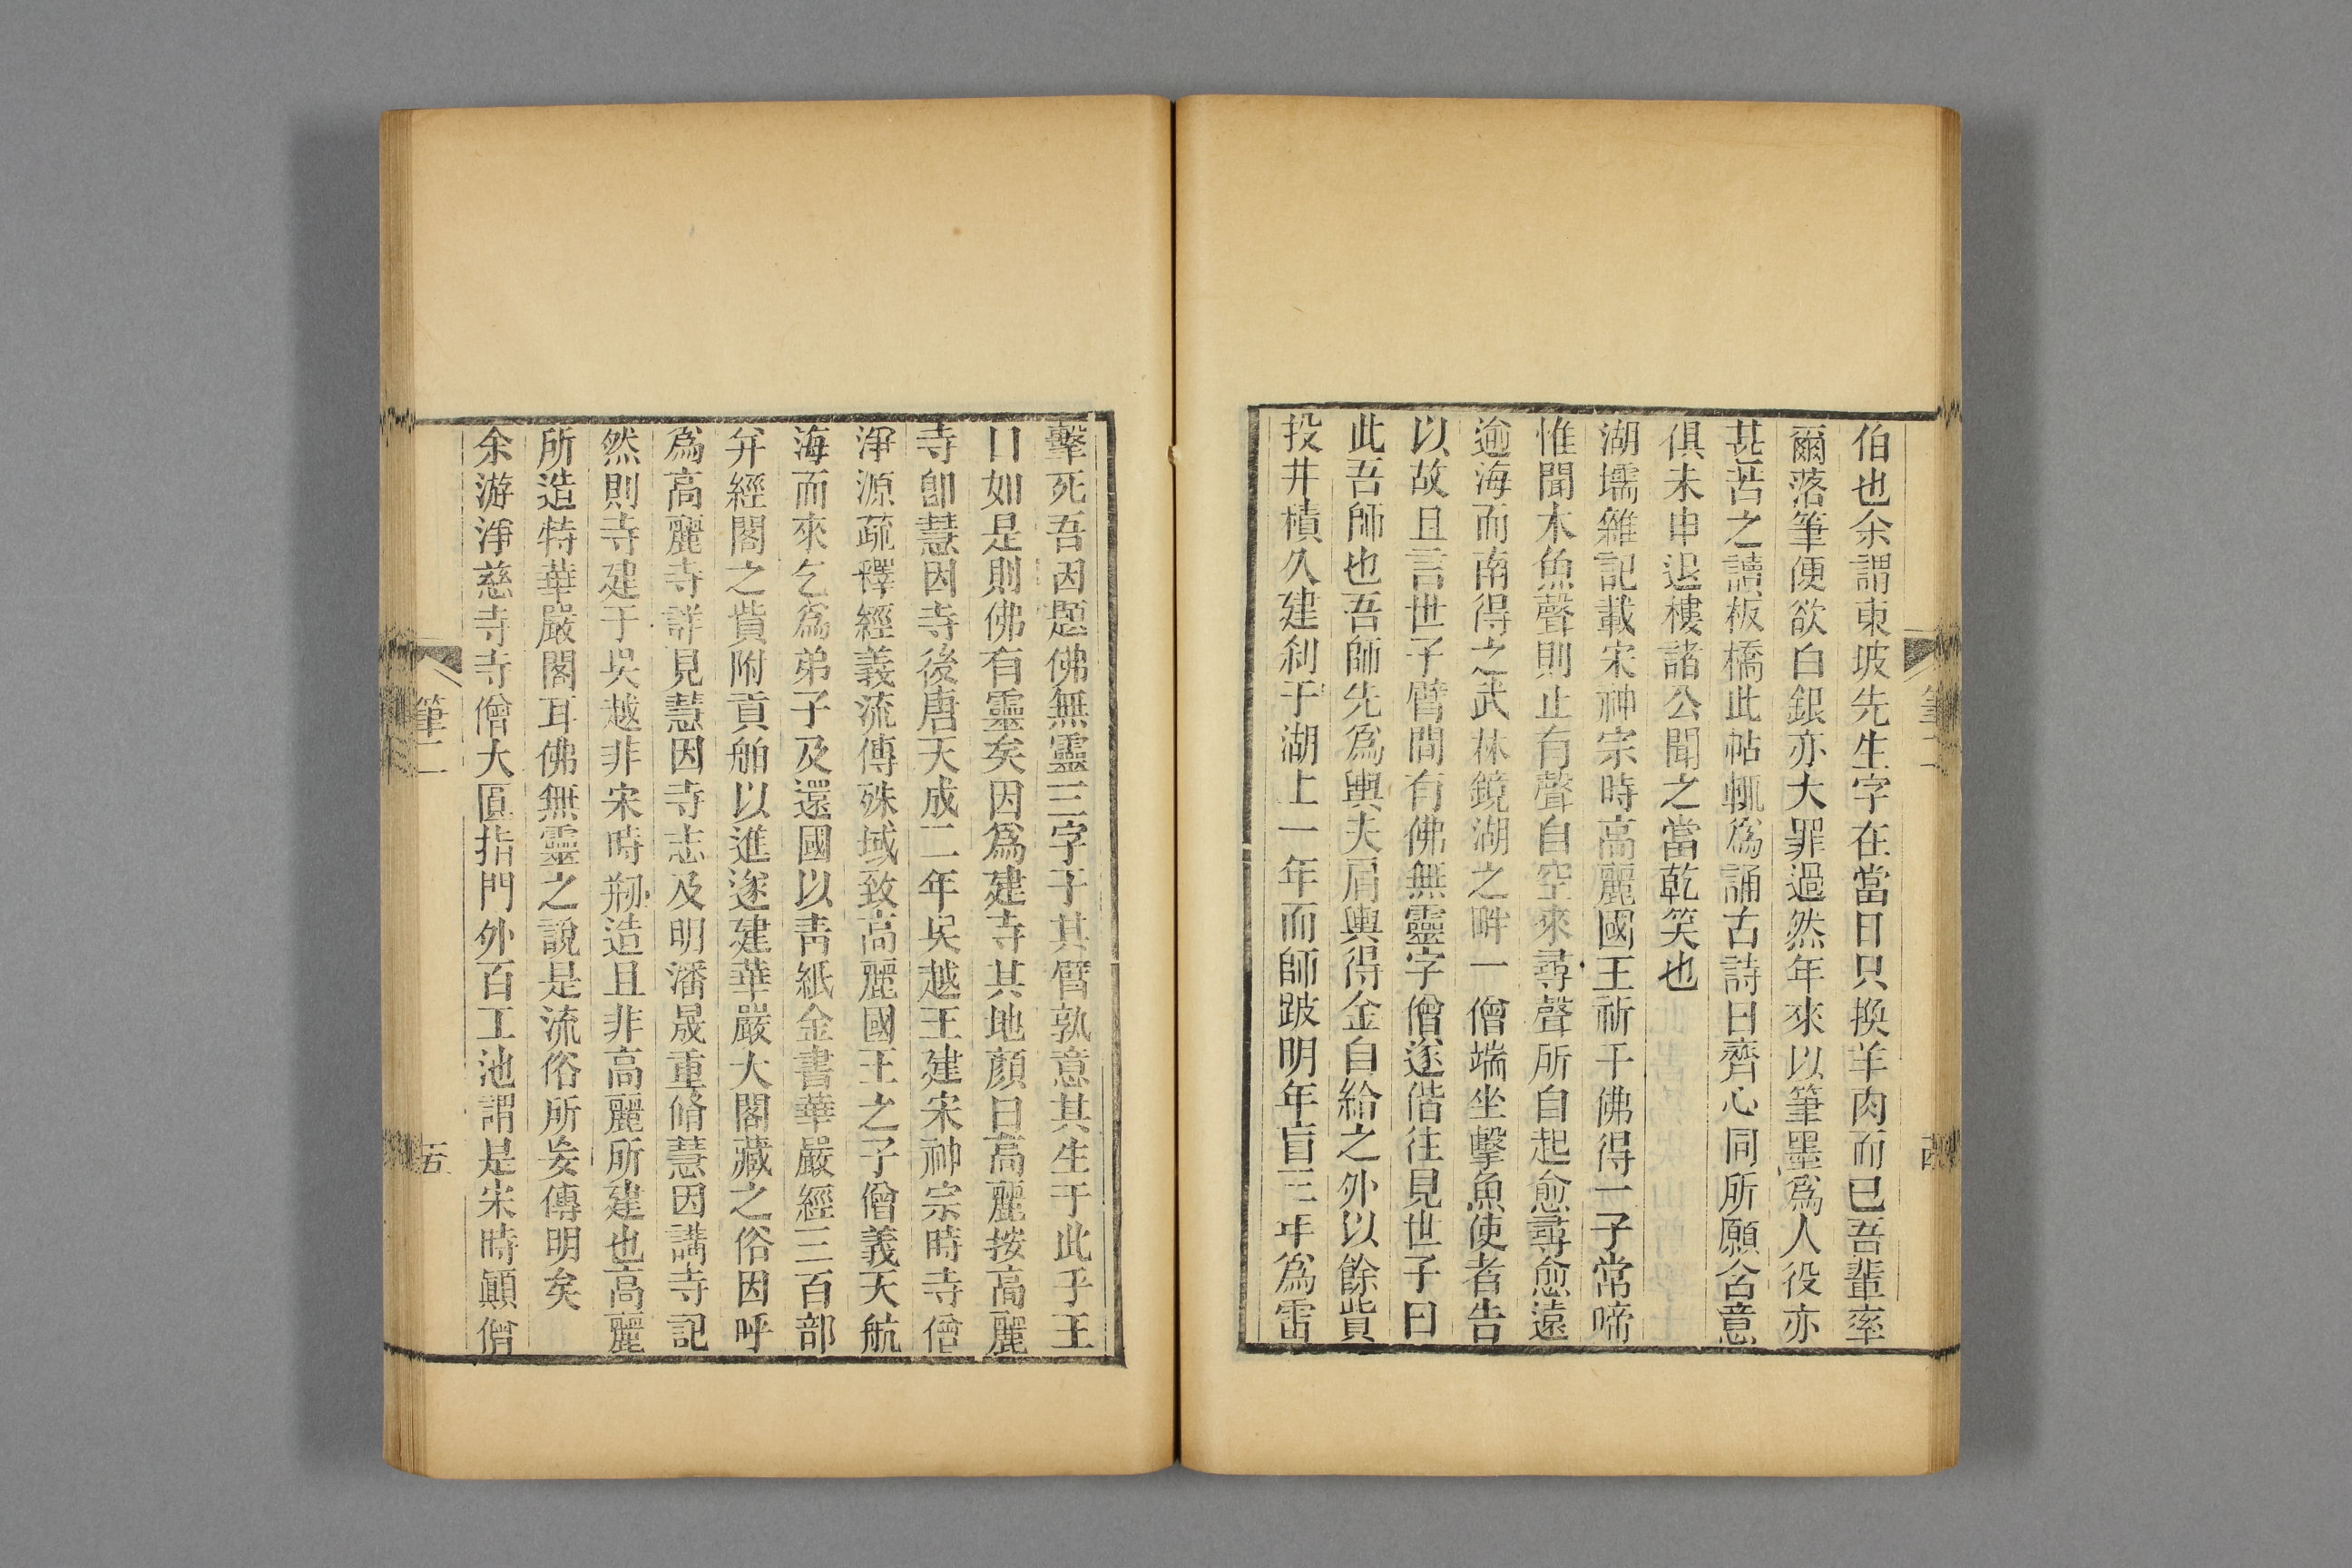 伯也余謂東坡先生字在當日只換羊肉而已吾輩率
爾落筆便欲白銀亦大罪過然年來以筆墨爲人役亦
甚苦之讀板橋此帖輒爲誦古詩曰齊心同所願含意
俱未申退樓諸公聞之當乾笑也
湖壖雜記載宋神宗時高麗國王祈于佛得一子常啼
惟聞木魚聲則止有聲自空來尋聲所自起愈尋愈遠
逾海而南得之武林鏡湖之畔一僧端坐擊魚使者告
以故且言世子臂間有佛無靈字僧遂偕往見世子曰
此吾師也吾師先爲輿夫肩輿得金自給之外以餘貲
投井積久建刹于湖上一年而師跛明年盲三年爲雷
擊死吾因題佛無靈三字于其臂孰意其生于此乎王
曰如是則佛有靈矣因爲建寺其地顏曰高麗按高麗
寺卽慧因寺後唐天成二年吳越王建宋神宗時寺僧
淨源疏釋經義流傳殊域致高麗國王之子僧義天航
海而來乞爲弟子及還國以靑紙金書華嚴經三百部
幷經閣之貲附貢舶以進遂建華嚴大閣藏之俗因呼
爲高麗寺詳見慧因寺志及明潘晟重脩慧因講寺記
然則寺建于吳越非宋時刱造且非高麗所建也高麗
所造特華嚴閣耳佛無靈之說是流俗所妄傳明矣
余游淨慈寺寺僧大匡指門外百工池謂是宋時顚僧
筆二